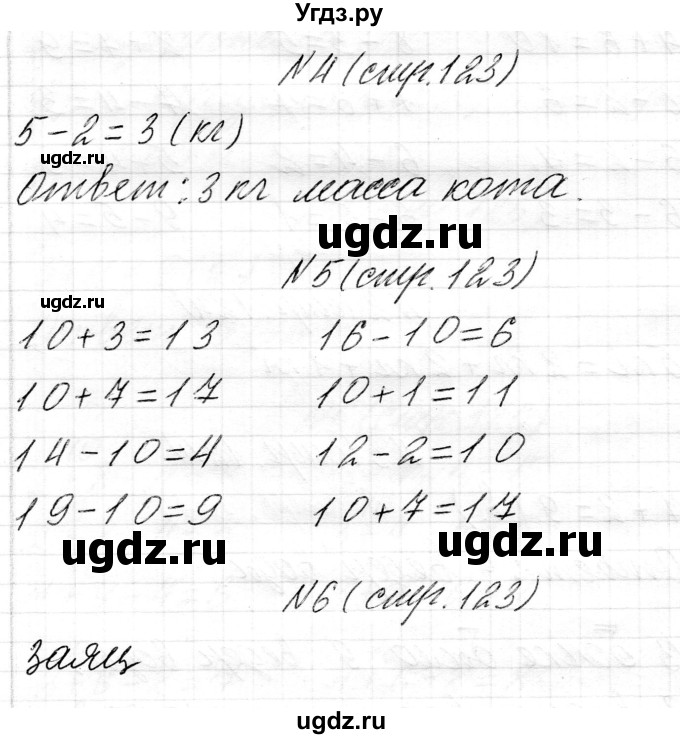 Угдз.ру
№4 (стр. 123)
5-2=3 (кг)
ugdz.ru
Ответ: 3 кг масса кота.
ugdz.ru
№5 (стр. 123)
ugdz.ru
10+3=13 16-10=6
10+7=17 10+1=11
14-10=4 12-2=10
19-10=9 10+7=17
ugdz.ru ugdz.ru
№6 (стр. 123)
заяц
ugdz.ru